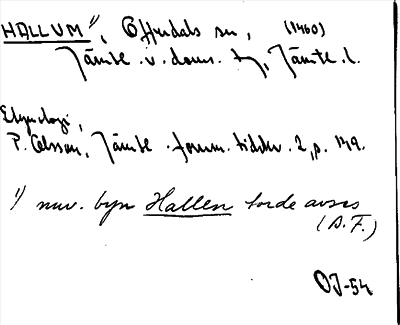 HALLUM 1), Offerdals sn, (1460)
Jämtl. v. doms. tg, Jämtl. l.
Etymologi,
P. Olsson, Jämtl. fornm. tidskr. 2, p. 149.
1) nuv. byn Hallen torde avses
(A.F.)
OJ-54